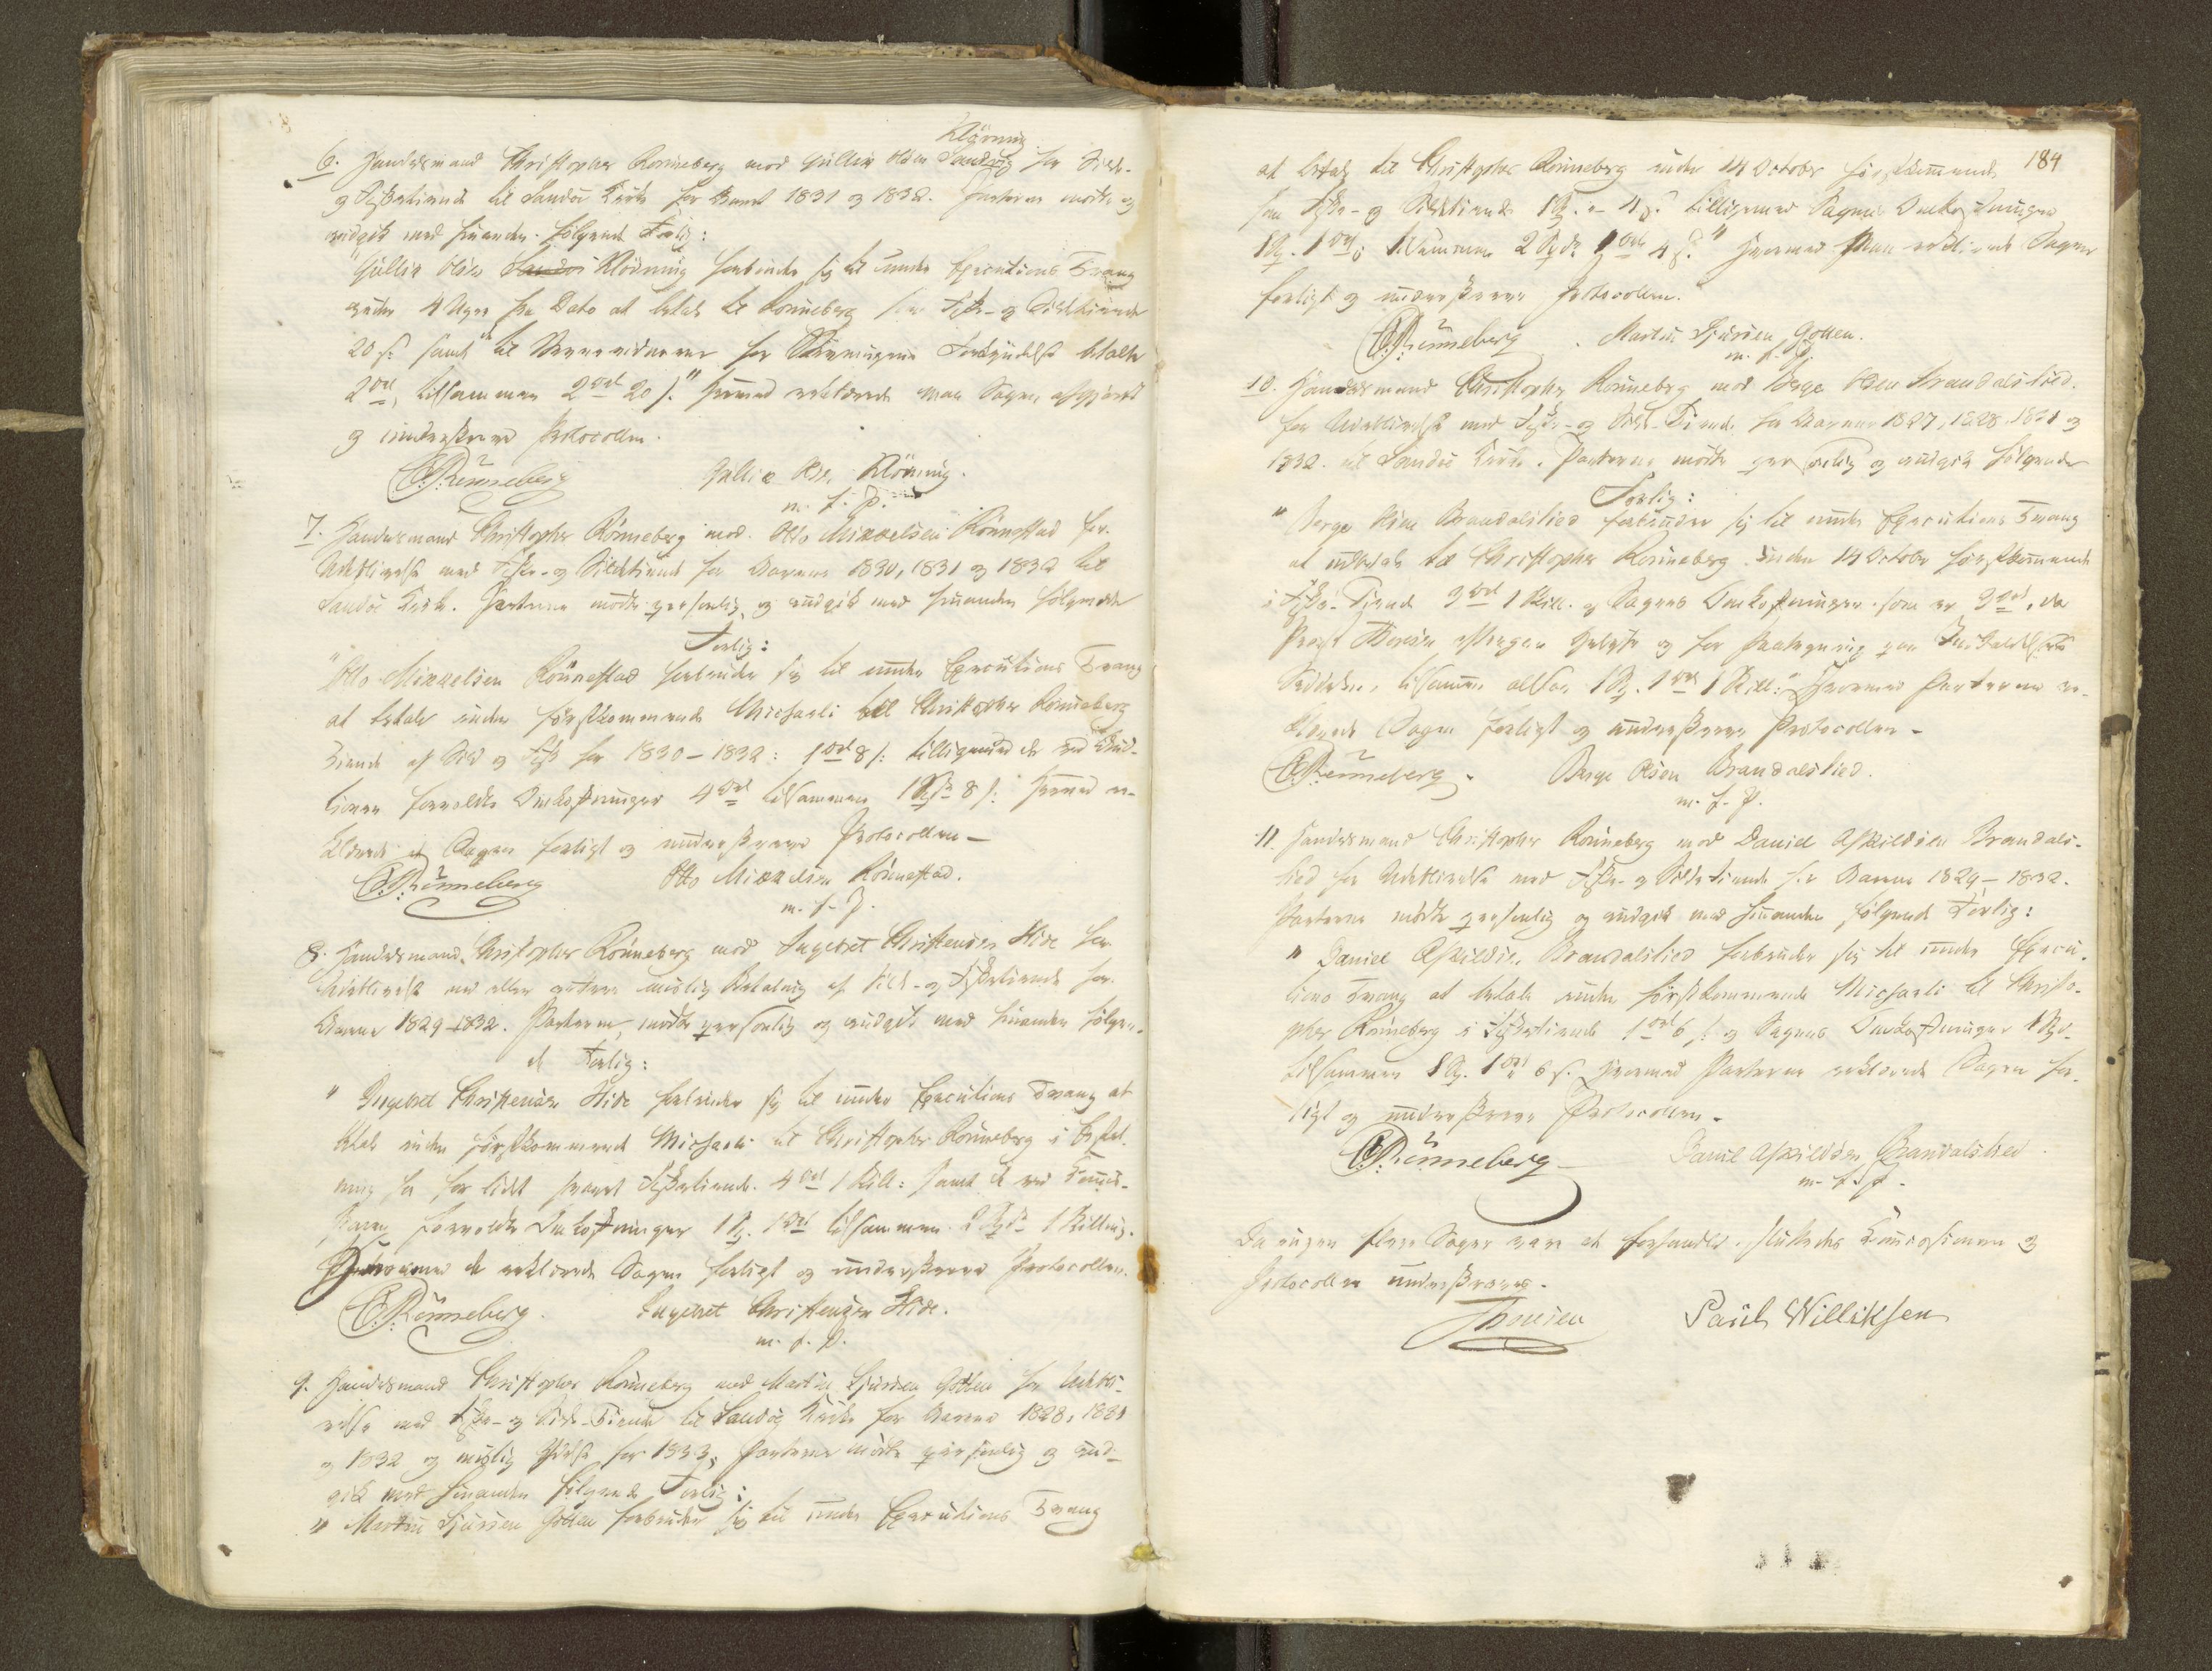 Klöning
6. Handelsmand Christopher Rönneberg mod Gullik Olsen Sandvig for Sild-
og Fisketiende til Sandöe Kirke for Aaret 1831 og 1832. Parterne mödte og
indgik med hinanden følgende Forlig:
"Gullik Olsen Sandöe Klöning forbinder sig til under Executions Tvang
inden 4 Uger fra Dato at betale til Rönneberg for Fiske- og Sildetiende
20 s. samt til for Forkyndelse betalte
2 Ort, tilsammen 2 Ort 20 s." Hermed erklærede man Sagen afgjort
og underskrev Protocollen.
C. Rönneberg Gullik Ols. Klöning.
m. f. P.
7. Handelsmand Christopher Rönneberg mod Otto Mikkelsen Rönnestad for
Udeblivelse med Fiske- og Sildetiende for Aarene 1830, 1831 og 1832 til
Sandöe Kirke. Parterne mödte personlig og indgik med hinanden følgende
Forlig:
"Otto Mikkelsen Rönnestad forbinder sig til under Executions Tvang
at betale inden førstkommende Michaeli til Christopher Rönneberg
Tiende af Sild og Fisk for 1830-1832: 1 Ort 8 s: tilligemed de ved
forvoldte Omkostninger 4 Ort tilsammen 1 Spd 8 s:" Hermed er-
klærede de Sagen forligt og underskreve Protocollen -
C. Rönneberg Otto Mikkelsen Rönnestad.
m. f. P.
8. Handelsmand Christopher Rönneberg mod Ingebret Christensen Hide for
Udeblivelse med eller mislig Betaling af Sild- og Fisketiende for
Aarene 1829-1832. Parterne mödte personlig og indgik med hinanden følgen-
de Forlig:
" Ingebret Christensen Hide forbinder sig til under Executions Tvang at
betale inden førstkommende Michaeli til Christopher Rönneberg i
for for lidt svaret Fisketiende 4 Ort 1 Skill: samt de ved
forvoldte Omkostninger 1 Sp. 1 Ort tilsammen 2 Spd 1 Skilling.
de erklærede Sagen forligt og underskreve Protocollen.
C. Rönneberg. Ingebret Christensen Hide.
m. f. P.
9. Handelsmand Christopher Rönneberg mod Martin Sjursen Gotten for Udebli-
velse med Fiske- og Silde-Tiende til Sandöe Kirke for Aarene 1828, 1831
og 1832 og mislig for 1833, Parterne mödte personlig og ind-
gik med hinanden følgende Forlig:
" Martin Sjursen Gotten forbinder sig til under Executions Tvang
184
at betale til Christopher Rönneberg inden 14 October førstkommende
for Fiske- og Sildetiende 1 Sp. - 4 s. tilligemed Sagens Omkostninger
1 Sp. 1 Ort; tilsammen 2 Spd 1 Ort 4 s." Hvormed man erklærede Sagen
forligt og underskreve Protocollen.
C. Rönneberg. Martin Sjursen Gotten.
m. f. P.
10. Handelsmand Christopher Rönneberg mod Børge Olsen Brandalslied.
for Udeblivelse med Fiske- og Sild-Tiende for Aarene 1827, 1828, 1831 og
1832 til Sandöe Kirke. Parterne mödte personlig og indgik følgende
Forlig:
" Børge Olsen Brandalslied forbinder sig til under Executions Tvang
at udbetale til Christopher Rönneberg inden 14 October førstkommende
i Fiske-Tiende 3 Ort 1 Skill. og Sagens Omkostninger som er 3 Ort, da
og for Paategning paa
Seddelen, tilsammen altsaa 1 Sp. 1 Ort 1 Skill:" Hvormed Parterne er-
klærede Sagen forligt og underskreve Protocollen -
C. Rönneberg. Børge Olsen Brandalslied.
m. f. P.
11. Handelsmand Christopher Rönneberg mod Daniel Askildsen Brandals-
lied for Udeblivelse med Fiske- og Sildetiende for Aarene 1829-1832.
Parterne mödte personlig og indgik med hinanden følgende Forlig:
" Daniel Askildsen Brandalslied forbinder sig til under Execu-
tions Tvang at betale inden førstkommende Michaeli til Christo-
pher Rönneberg i Fisketiende 1 Ort 6 s. og Sagens Omkostninger 1 Spd.
tilsammen 1 Sp. 1 Ort 6 s. Hvormed Parterne erklærede Sagen for-
ligt og underskreve Protocollen.
C. Rönneberg Daniel Askildsen Brandalslied.
m. f. P.
Da ingen flere Sager vare at forhandle, sluttedes Commissionen og
Protocollen underskreves.
Thomsen Paul Williksen